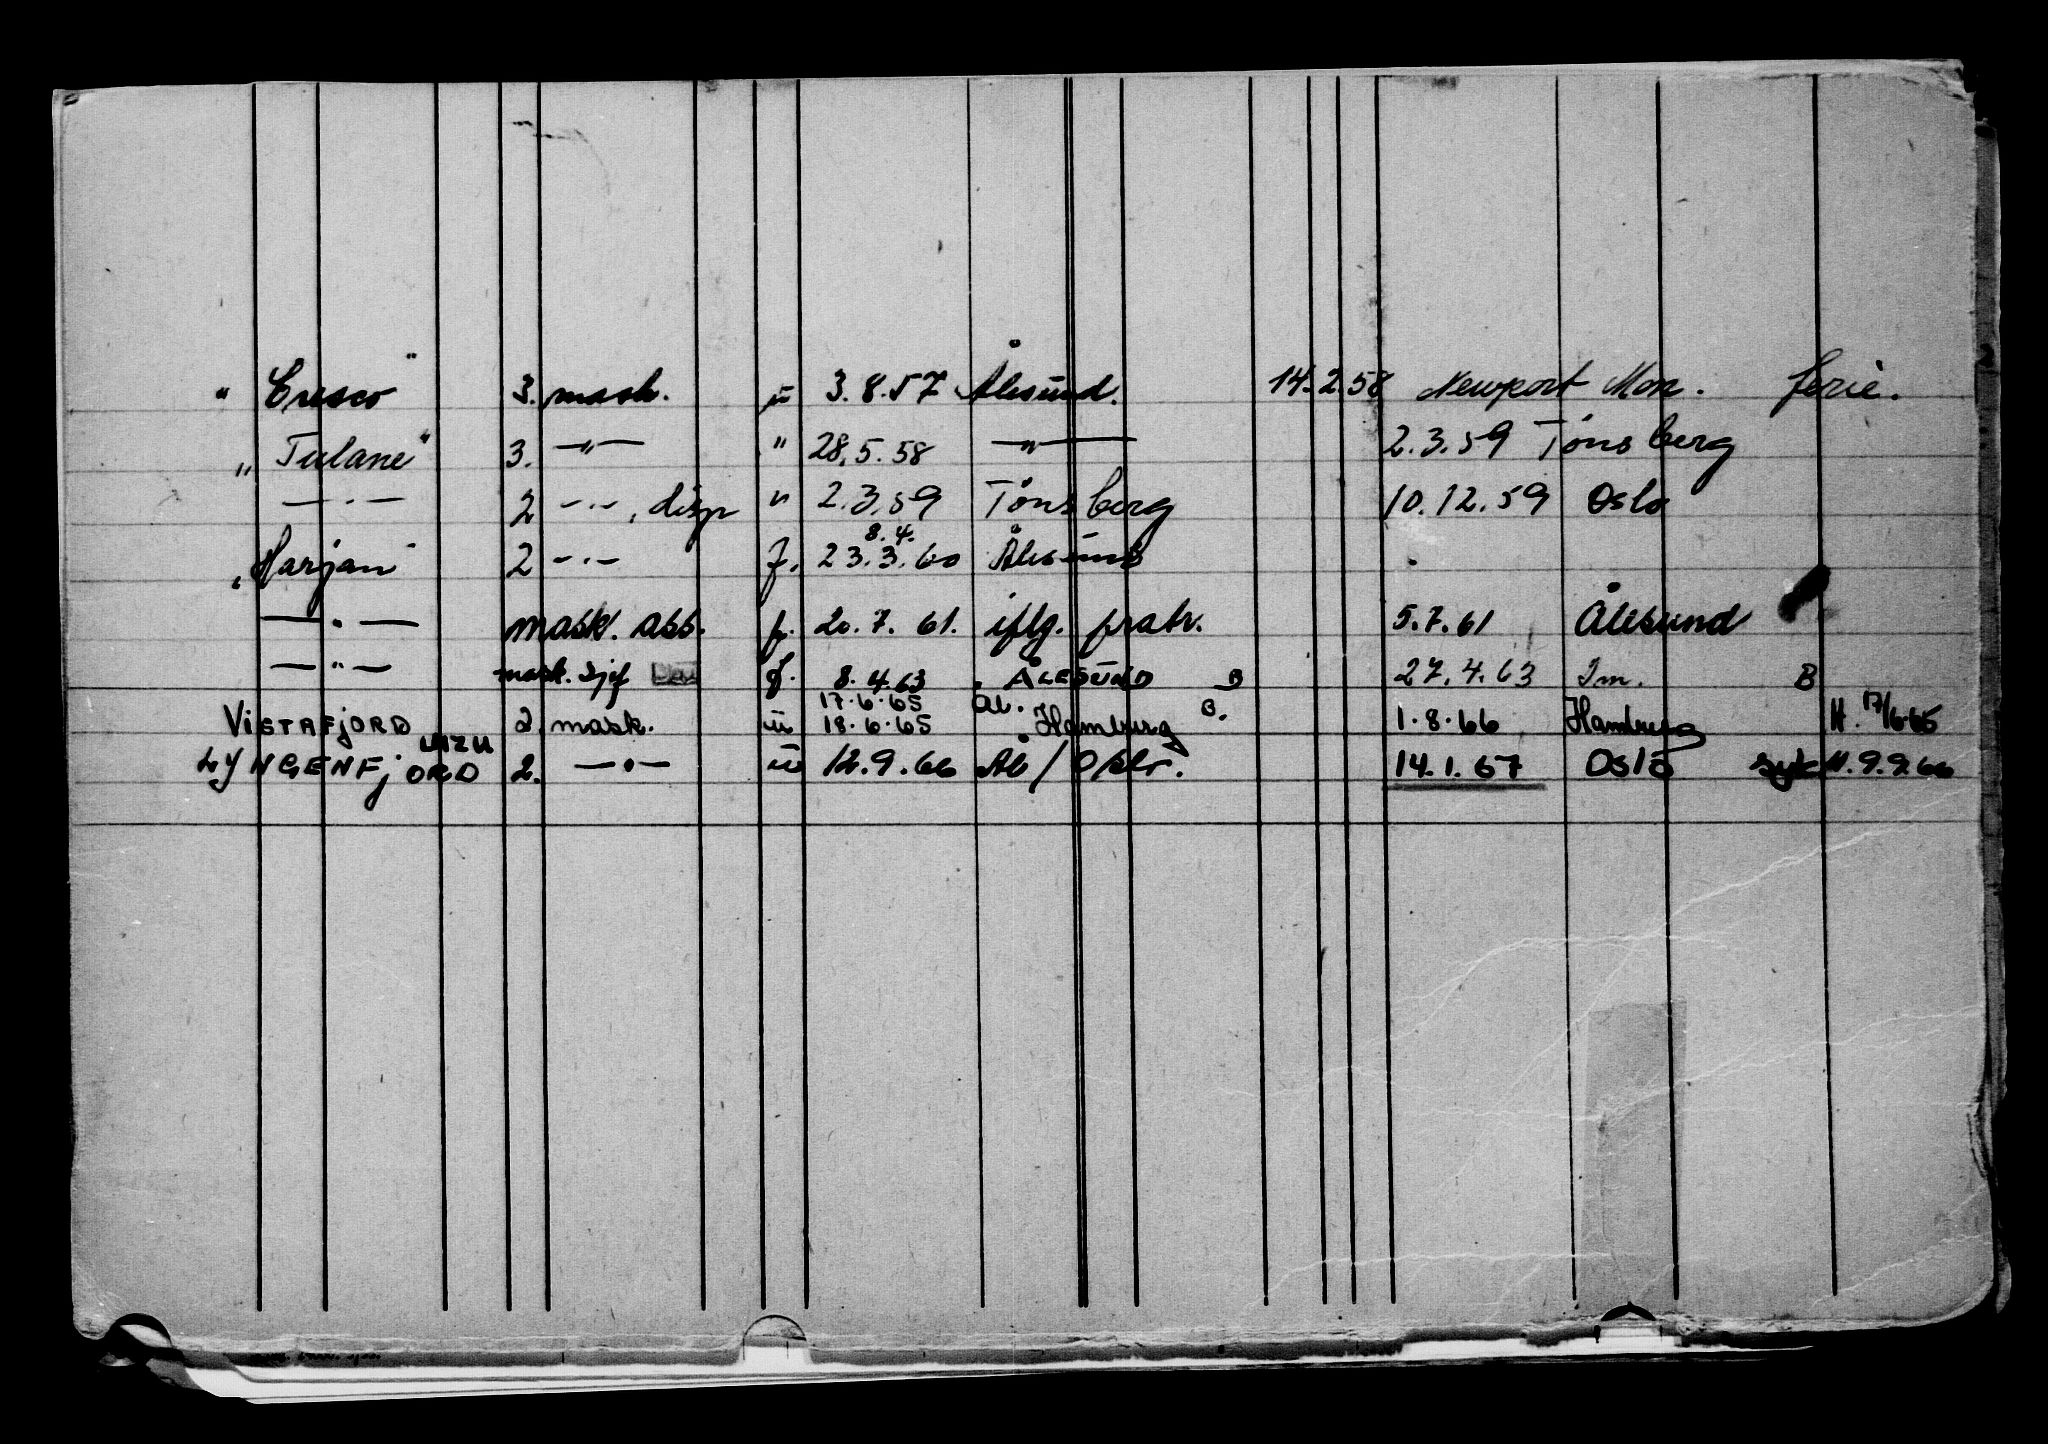 " Cresco " 3. mask. u 3.8.57 Ålesund. 14.2.58 Newport Mon. ferie.
" Tulane " 3. — " — " 28.5.58 — " — 2.3.59 Tönsberg
— . — 2 — . — , disp " 2.3.59 Tönsberg 10.12.59 Oslo
8.4.
" Harjan " 2 — . — f. 23.3.60 Ålesund
— . — mask. ass. f. 20.7.61. iflg. pratr. 5.7.61 Ålesund
— " — mask. sjef f. 8.4.63 ÅLESUND B 27.4.63 Im. B
17.6.65 Ål.
VISTAFJORD 2 mask. u 18.6.65 Hamburg B. 1.8.66 Hamburg H. 17/6.65
LMZU
LYNGENFJORD 2. — . — u 12.9.66 Ål / Oslo. 14.1.67 Oslo syk H. 9.9.66